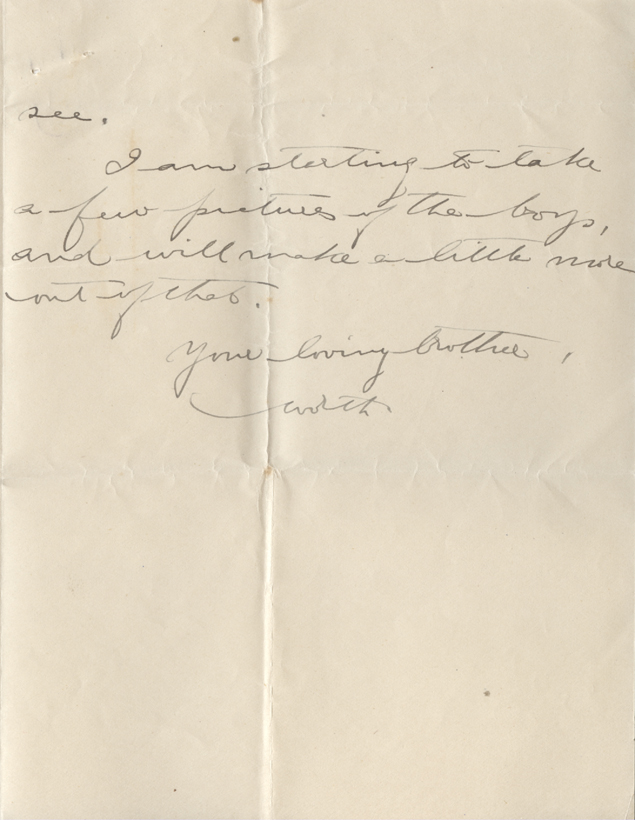 see.
I am starting to take
a few pictures of the boys,
and will make a little more
out of that.
Your loving brother,
Worth